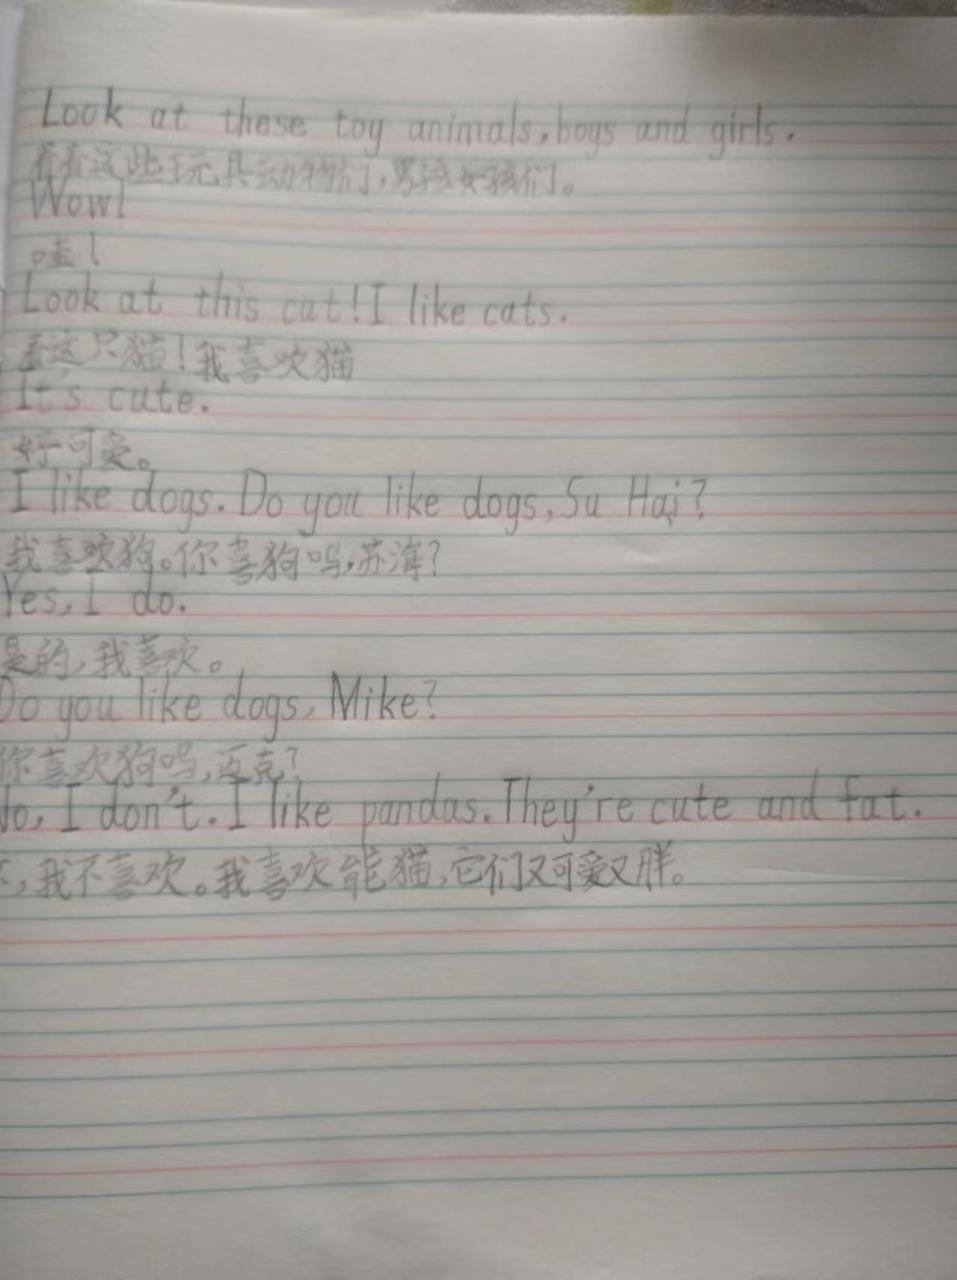 Look at these toy animals,boys and girls.
看看这些玩具动物们,男孩女孩们。
Wow!
哇!
Look at this cat!I like cats.
看这只猫!我喜欢猫
It's cute.
好可爱。
I like dogs.Do you like dogs,Su Hai?
我喜欢狗。你喜狗吗,苏海?
Yes,I do.
是的,我喜欢。
Do you like dogs,Mike?
你喜欢狗吗,迈克?
No,I don't.I like pandas.They're cute and fat.
,我不喜欢。我喜欢能猫,它们又可爱又胖。